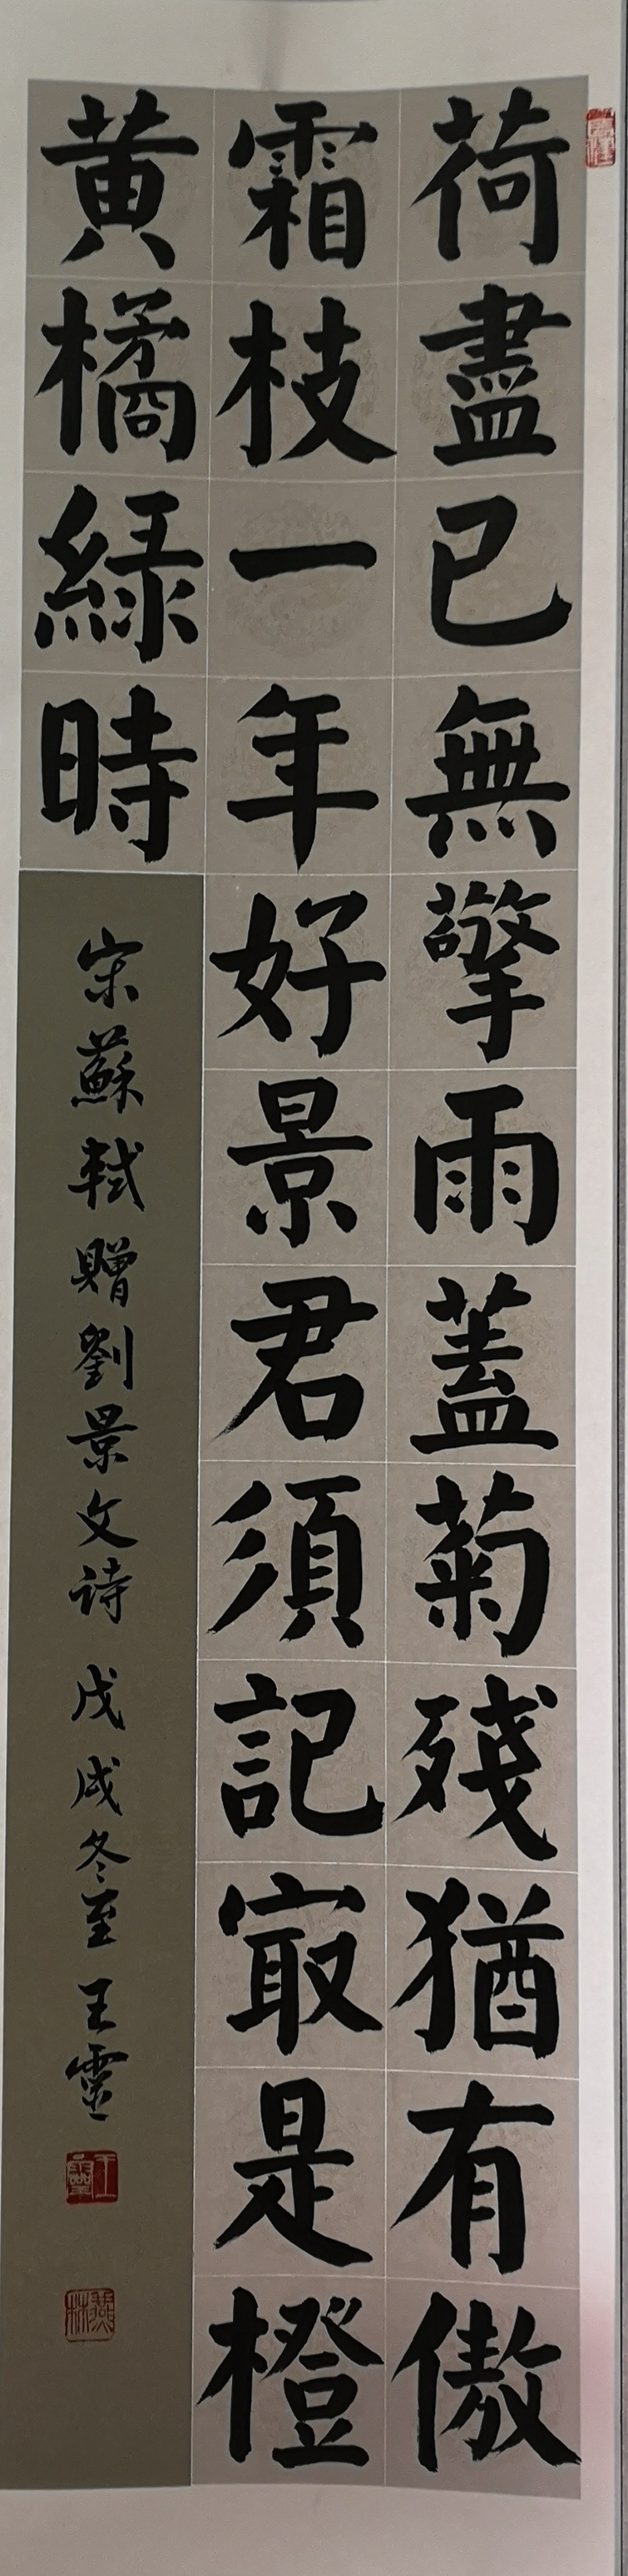 荷盡已無擎雨蓋菊殘猶有傲
霜枝一年好景君須記冣是橙
黄橘緑時
宋蘇軾贈劉景文诗 戊戌冬至 王靈
王靈